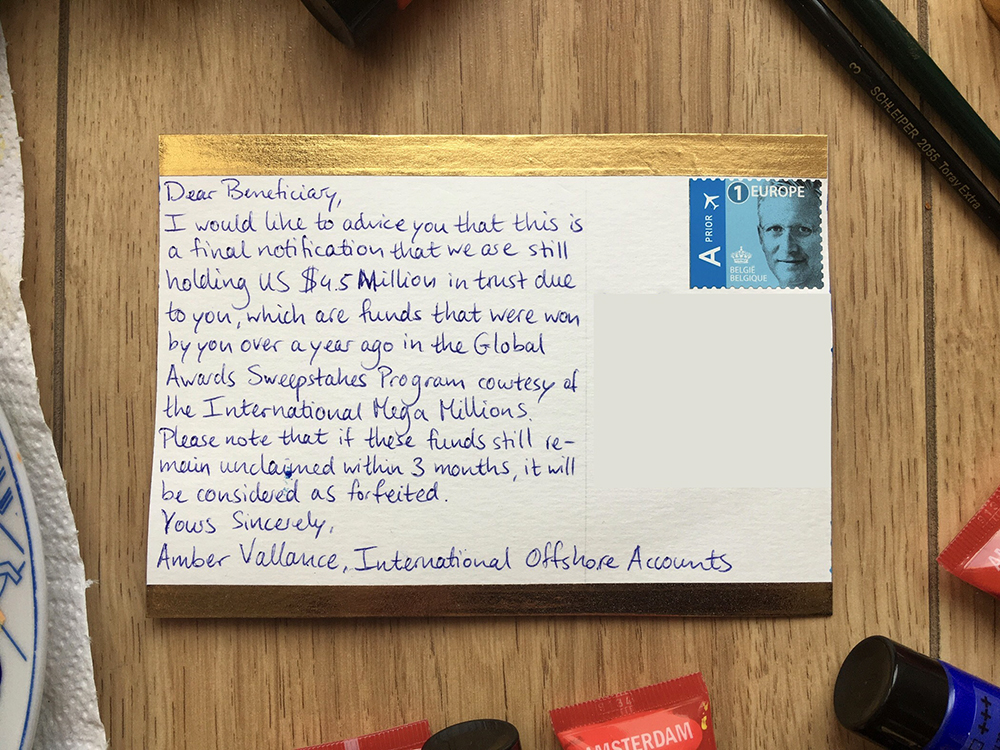 Dear Beneficiary,
I would like to advice you that this is
a final notification that we are still
holding US $4.5 Million in trust due
to you, which are funds that were won
by you over a year ago in the Global
Awards Sweepstakes Program courtesy of
the International Mega Millions.
Please note that if these funds still re-
main unclaimed within 3 months, it will
be considered as forfeited.
Yours Sincerely,
Amber Vallance, International Offshore Accounts
A PRIOR
1 EUROPE
BELGIË
BELGIQUE
3 SCHLEIPER 2055 Toray Extra
AMSTERDAM
+++